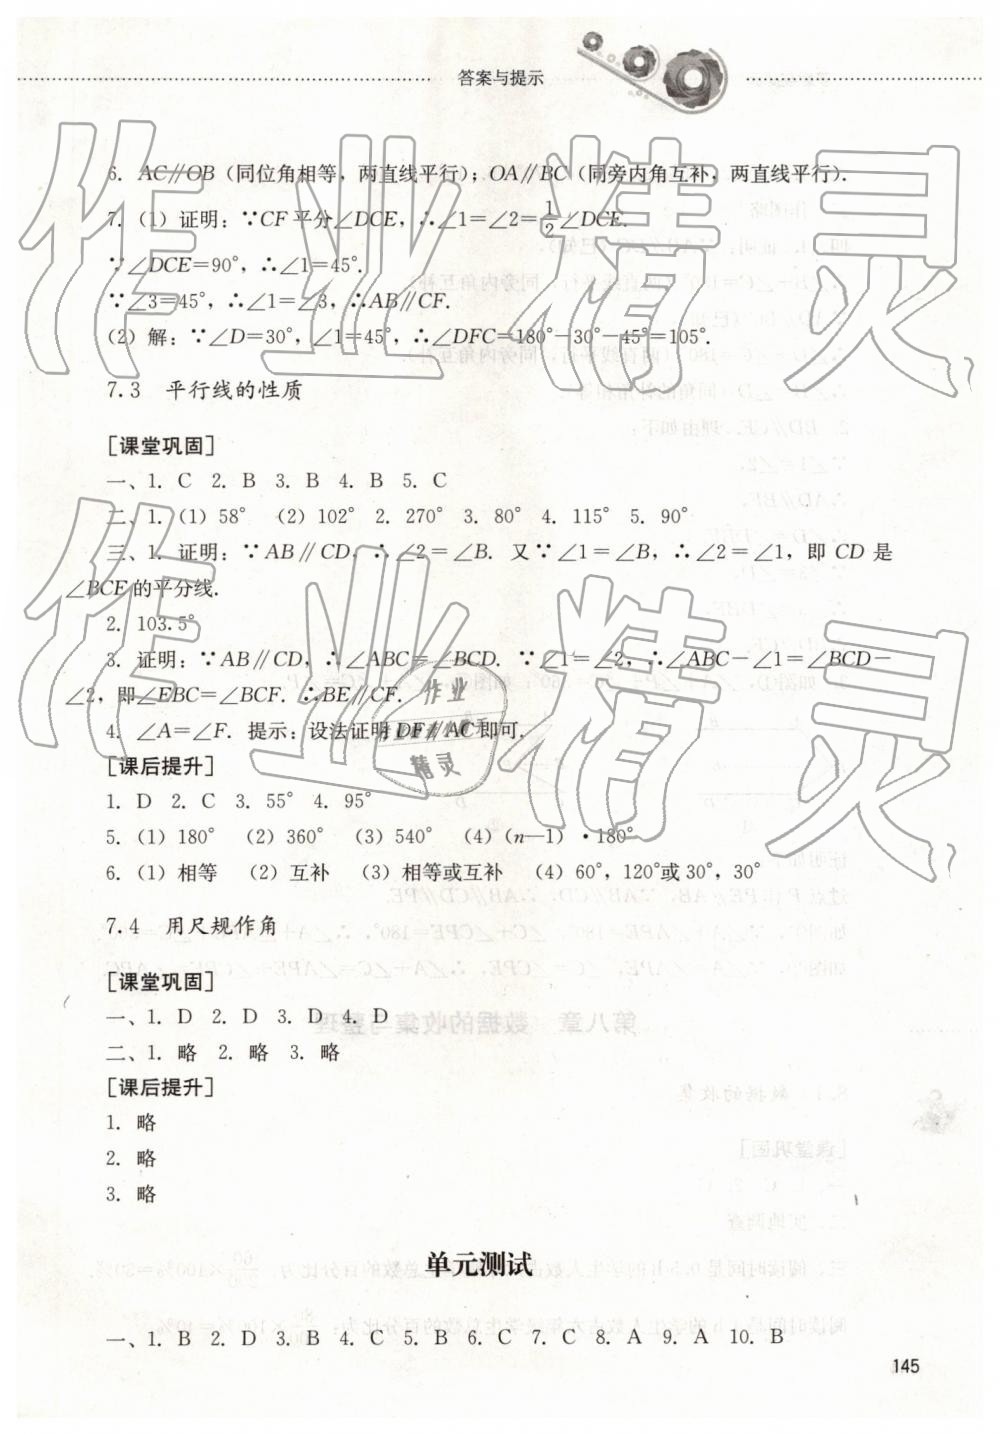 答案与提示
6. AC∥OB（同位角相等，两直线平行）；OA∥BC（同旁内角互补，两直线平行）.
7.（1）证明：∵CF平分∠DCE，∴∠1＝∠2＝1/2∠DCE.
∵∠DCE＝90°，∴∠1＝45°.
∵∠3＝45°，∴∠1＝∠3，∴AB∥CF.
（2）解：∵∠D＝30°，∠1＝45°，∴∠DFC＝180°－30°－45°＝105°.
7.3 平行线的性质
［课堂巩固］
一、1. C 2. B 3. B 4. B 5. C
二、1.（1）58° （2）102° 2. 270° 3. 80° 4. 115° 5. 90°
三、1. 证明：∵AB∥CD，∴∠2＝∠B. 又∵∠1＝∠B，∴∠2＝∠1，即 CD 是
∠BCE的平分线.
2. 103.5°
3. 证明：∵AB∥CD，∴∠ABC＝∠BCD. ∵∠1＝∠2，∴∠ABC－∠1＝∠BCD－
∠2，即∠EBC＝∠BCF. ∴BE∥CF.
4. ∠A＝∠F. 提示：设法证明DF∥AC即可.
［课后提升］
1. D 2. C 3. 55° 4. 95°
5.（1）180° （2）360° （3）540° （4）(n—1)·180°
6.（1）相等 （2）互补 （3）相等或互补 （4）60°，120°或30°，30°
7.4 用尺规作角
［课堂巩固］
一、1. D 2. D 3. D 4. D
二、1. 略 2. 略 3. 略
［课后提升］
1. 略
2. 略
3. 略
单元测试
一、1. B 2. D 3. B 4. C 5. B 6. C 7. C 8. A 9. A 10. B
145
作业精灵
作业精灵
作业
精灵